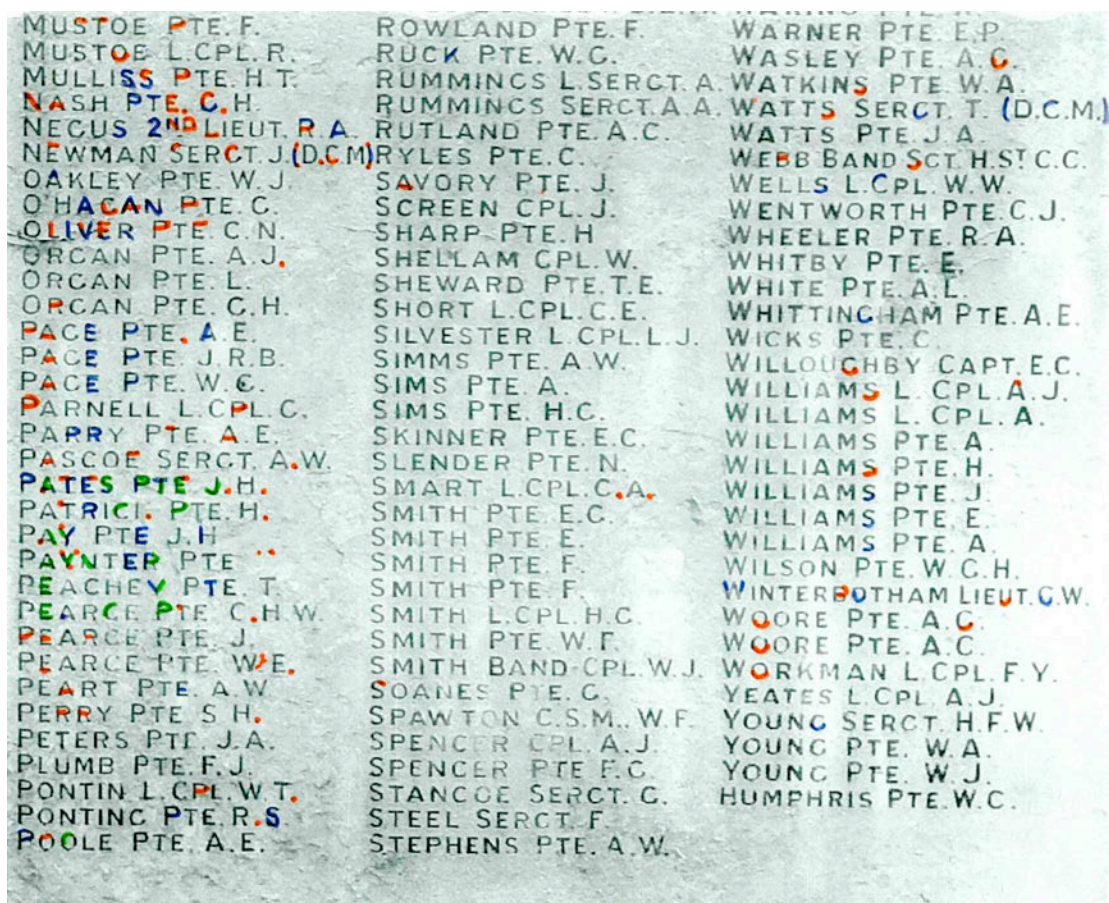 MUSTOE PTE. F.
MUSTOE L.CPL. R.
MULLISS PTE. H.T.
NASH PTE. C.H.
NEGUS 2ND LIEUT. R.A.
NEWMAN SERGT. J. (D.C.M)
OAKLEY PTE. W.J.
O'HAGAN PTE. C.
OLIVER PTE. C.N.
ORGAN PTE. A.J.
ORGAN PTE. L.
ORGAN PTE. C.H.
PAGE PTE. A.E.
PAGE PTE. J.R.B.
PAGE PTE. W.C.
PARNELL L.CPL. C.
PARRY PTE. A.E.
PASCOE SERGT. A.W.
PATES PTE J.H.
PTE. H.
PAY PTE J.H
PAYNTER PTE
PEACHEY PTE. T.
PEARCE PTE C.H.W.
PEARCE PTE. J.
PEARCE PTE W.E.
PEART PTE. A.W.
PERRY PTE S.H.
PETERS PTE. J.A.
PLUMB PTE. F.J.
PONTIN L.CPL. W.T.
PONTING PTE. R.S.
POOLE PTE. A.E.
ROWLAND PTE. F.
RUCK PTE. W.C.
RUMMINGS L.SERGT. A.
RUMMINGS SERGT. A.A.
RUTLAND PTE. A.C.
RYLES PTE. C.
SAVORY PTE. J.
SCREEN CPL. J.
SHARP PTE. H
SHELLAM CPL. W.
SHEWARD PTE. T.E.
SHORT L.CPL. C.E.
SILVESTER L.CPL. L.J.
SIMMS PTE. A.W.
SIMS PTE. A.
SIMS PTE. H.C.
SKINNER PTE. E.C.
SLENDER PTE. N.
SMART L.CPL. C.A.
SMITH PTE. E.C.
SMITH PTE. E.
SMITH PTE. F.
SMITH PTE. F.
SMITH L.CPL. H.C.
SMITH PTE. W.F.
SMITH BAND-CPL. W.J.
SOANES PTE. C.
SPAWTON C.S.M. W.F.
SPENCER CPL. A.J.
SPENCER PTE F.C.
STANCOE SERGT. C.
STEEL SERGT. F.
STEPHENS PTE. A.W.
WARNER PTE. E.P.
WASLEY PTE. A.G.
WATKINS PTE. W.A.
WATTS SERGT. T. (D.C.M.)
WATTS PTE. J.A.
WEBB BAND SGT. H.ST C.C.
WELLS L.CPL. W.W.
WENTWORTH PTE. C.J.
WHEELER PTE. R.A.
WHITBY PTE. E.
WHITE PTE. A.L.
WHITTINGHAM PTE. A.E.
WICKS PTE. C.
WILLOUGHBY CAPT. E.C.
WILLIAMS L. CPL. A.J.
WILLIAMS L. CPL. A.
WILLIAMS PTE. A.
WILLIAMS PTE. H.
WILLIAMS PTE. J.
WILLIAMS PTE. E.
WILLIAMS PTE. A.
WILSON PTE. W.C.H.
WINTERBOTHAM LIEUT. C.W.
WOORE PTE. A.G.
WOORE PTE. A.C.
WORKMAN L.CPL. F.Y.
YEATES L.CPL. A.J.
YOUNG SERGT. H.F.W.
YOUNG PTE. W.A.
YOUNG PTE. W.J.
HUMPHRIS PTE. W.C.